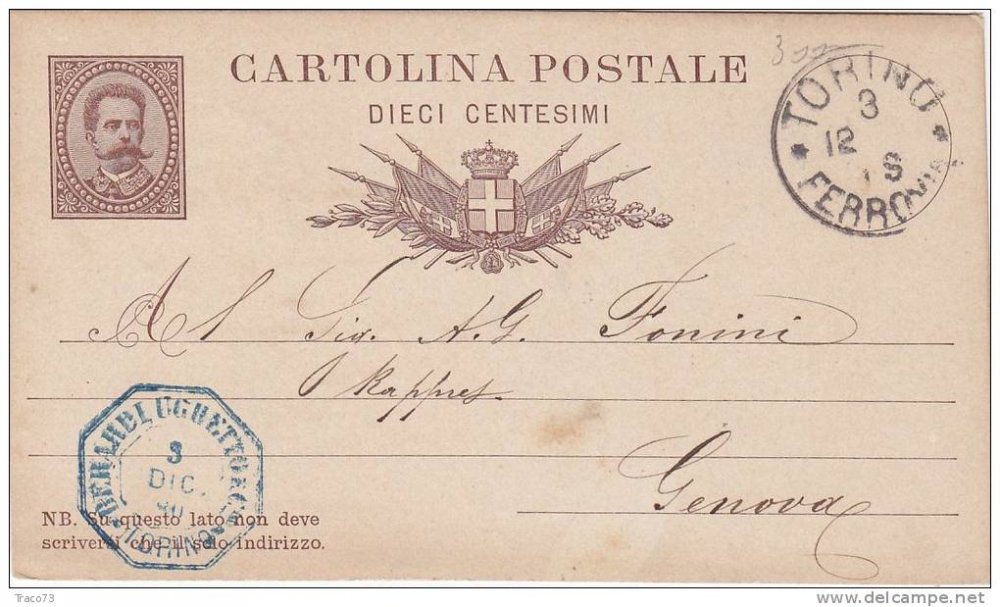 CARTOLINA POSTALE
DIECI CENTESIMI
TORINO
3
12
S
FERROVIA
Al Sig. A. G. Fonini
Rappres.
Genova
3
DIC.
80
TORINO
NB. Su questo lato non deve
scriversi che il solo indirizzo.
Traco73
delcampe.net